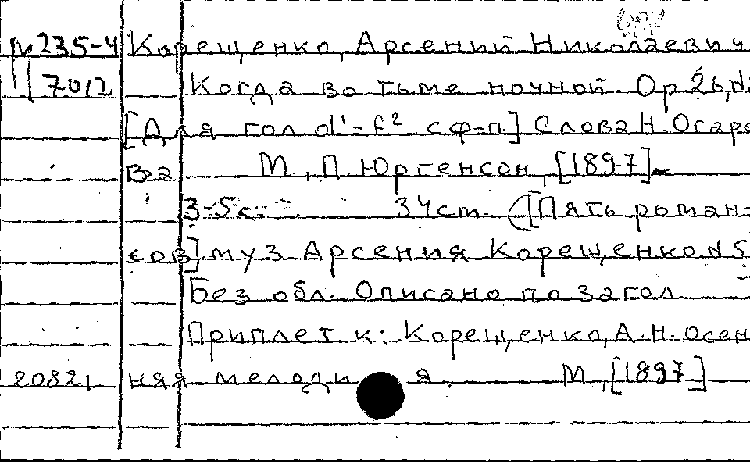 М 235-4 Корещенко, Арсений Николаевич
7012 Когда во тьме ночной. Ор 26, №
[Для гол d'-f² с ф-п] Слова Н. Осаро
ва М., П Юргенсон, [1897]
3-5с. 34cm. ([Пять роман-
сов] муз Арсения Корещенко №5
Без обл. Описано по загол
Приплет к: Корещенко, А. Н. Осен
20821 няя мелодия. М., [1897]